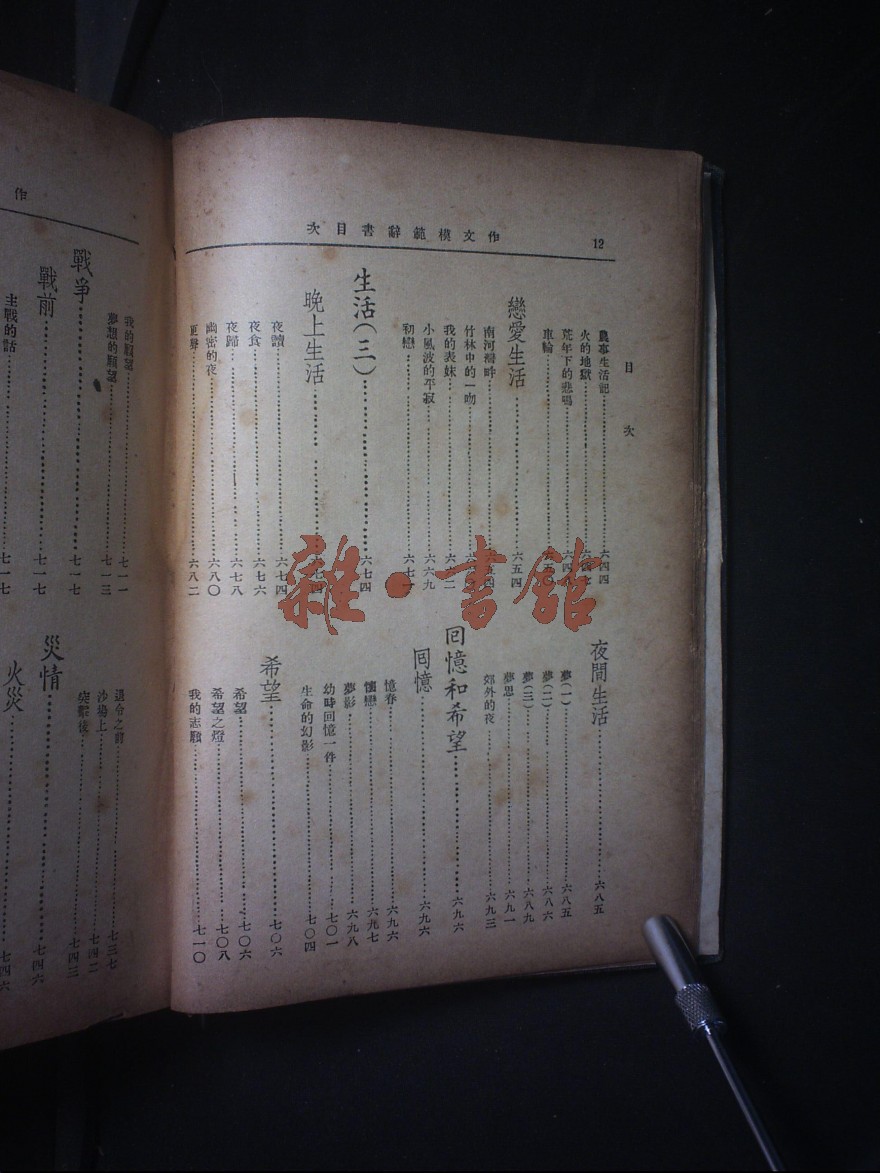 12
次目書辭範模文作
目次
農事生活記……六四四
火的地獄……六四七
荒年下的悲鳴……六四八
車輪……六五〇
戀愛生活……六五四
南河灣畔……六五四
竹林中的一吻
我的表妹
小風波的平寂……六六九
初戀……六七一
生活(三)……六七四
晚上生活……六七四
夜讀……六七四
夜食……六七六
夜歸……六七八
幽密的夜……六八〇
更聲……六八二
夜間生活……六八五
夢(一)……六八五
夢(二)……六八六
夢(三)……六八九
夢思……六九一
郊外的夜……六九三
回憶和希望……六九六
回憶……六九六
憶春……六九六
懷戀……六九七
夢影……六九八
幼時回憶一件……七〇一
生命的幻影……七〇四
希望……七〇六
希望……七〇六
希望之燈……七〇八
我的志願……七一〇
作
我的願望……七一一
夢想的願望……七一三
戰爭……七一七
戰前……七一七
主戰的話……七一七
退令之前……七三七
沙場上……七四二
突擊後……七四三
災情……七四六
火災……七四六
雜·書館